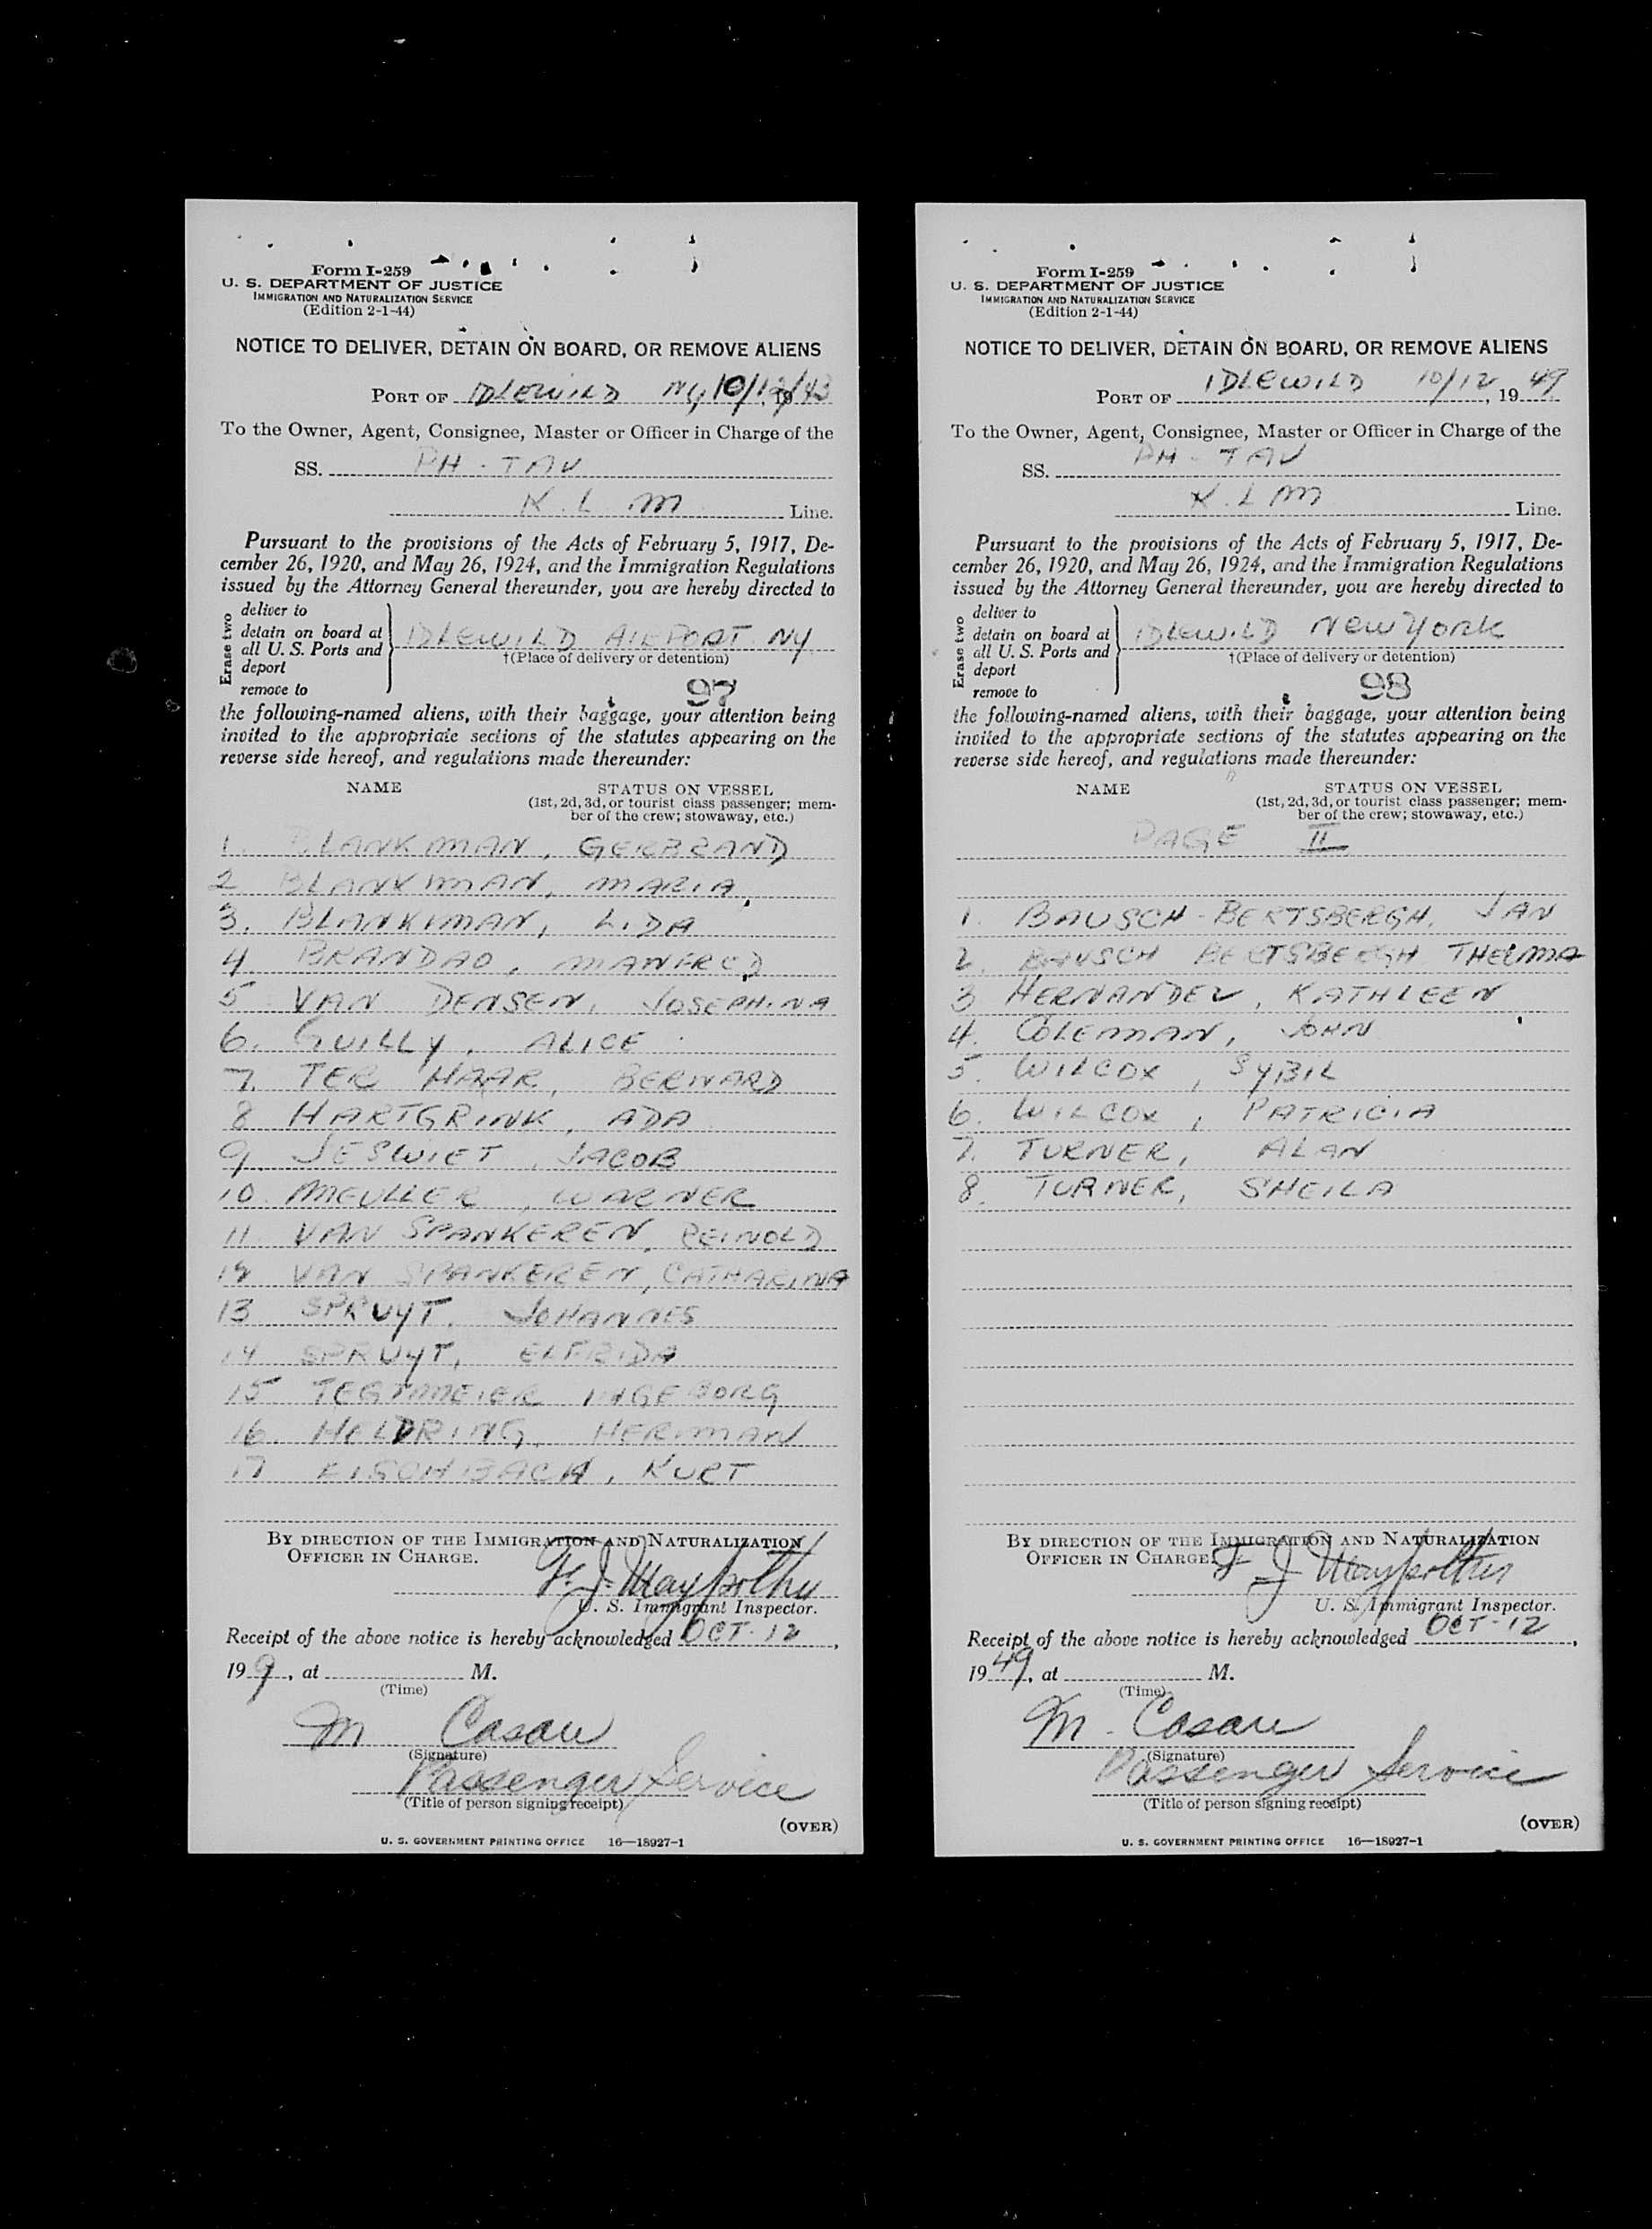 Form I-259
U. S. DEPARTMENT OF JUSTICE
IMMIGRATION AND NATURALIZATION SERVICE
(Edition 2-1-44)
NOTICE TO DELIVER, DETAIN ON BOARD, OR REMOVE ALIENS
PORT OF IDLEWILD NY, 10/12/43, 19
To the Owner, Agent, Consignee, Master or Officer in Charge of the
SS. PH - TAV
K. L. M Line.
Pursuant to the provisions of the Acts of February 5, 1917, De-
cember 26, 1920, and May 26, 1924, and the Immigration Regulations
issued by the Attorney General thereunder, you are hereby directed to
Erase two
deliver to
detain on board at
all U. S. Ports and
deport
remove to
IDLEWILD AIRPORT NY
†(Place of delivery or detention)
97
the following-named aliens, with their baggage, your attention being
invited to the appropriate sections of the statutes appearing on the
reverse side hereof, and regulations made thereunder:
NAME
STATUS ON VESSEL
(1st, 2d, 3d, or tourist class passenger; mem-
ber of the crew; stowaway, etc.)
1. BLANKMAN, GERBRAND
2 BLANKMAN, MARIA
3. BLANKMAN, LIDA
4 BRANDAO, MANFRED
5 VAN DENSEN, JOSEPHINA
6. GUILLY, ALICE
7. TER HAAR, BERNARD
8 HARTGRINK, ADA
9. JESWIET, JACOB
10. MEULLER, WARNER
11. VAN SPANKEREN, REINOLD
12 VAN SPANKEREN, CATHARINA
13 SPRUYT. JOHANNES
14 SPRUYT, ELFRIDA
15 TEGTMEIER INGEBORG
16. HELDRING, HERMAN
17 FISCHBACH, KURT
BY DIRECTION OF THE IMMIGRATION AND NATURALIZATION
OFFICER IN CHARGE.
U. S. Immigrant Inspector.
Receipt of the above notice is hereby acknowledged OCT. 12,
19 9, at M.
(Time)
M Casau
(Signature)
Passenger Service
(Title of person signing receipt)
(OVER)
U. S. GOVERNMENT PRINTING OFFICE 16—18927-1
Form I-259
U. S. DEPARTMENT OF JUSTICE
IMMIGRATION AND NATURALIZATION SERVICE
(Edition 2-1-44)
NOTICE TO DELIVER, DETAIN ON BOARD, OR REMOVE ALIENS
PORT OF IDLEWILD 10/12, 19 49
To the Owner, Agent, Consignee, Master or Officer in Charge of the
SS. PH - TAV
K. L M Line.
Pursuant to the provisions of the Acts of February 5, 1917, De-
cember 26, 1920, and May 26, 1924, and the Immigration Regulations
issued by the Attorney General thereunder, you are hereby directed to
Erase two
deliver to
detain on board at
all U. S. Ports and
deport
remove to
IDLEWILD NEW YORK
†(Place of delivery or detention)
98
the following-named aliens, with their baggage, your attention being
invited to the appropriate sections of the statutes appearing on the
reverse side hereof, and regulations made thereunder:
NAME
STATUS ON VESSEL
(1st, 2d, 3d, or tourist class passenger; mem-
ber of the crew; stowaway, etc.)
PAGE II
1. BAUSCH-BERTSBERGH, JAN
2. BAUSCH BERTSBERGH THELMA
3 HERNANDEZ, KATHLEEN
4. COLEMAN, JOHN
5. WILCOX, SYBIL
6. WILCOX, PATRICIA
7. TURNER, ALAN
8. TURNER, SHEILA
BY DIRECTION OF THE IMMIGRATION AND NATURALIZATION
OFFICER IN CHARGE.
U. S. Immigrant Inspector.
Receipt of the above notice is hereby acknowledged OCT-12,
19 49, at M.
(Time)
M. Casau
(Signature)
Passenger Service
(Title of person signing receipt)
(OVER)
U. S. GOVERNMENT PRINTING OFFICE 16—18927-1